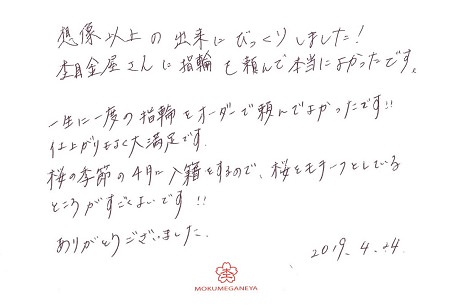 想像以上の出来にびっくりしました!
杢目金屋さんに指輪を頼んで本当によかったです。
一生に一度の指輪をオーダーで頼んでよかったです!!
仕上がりもよく大満足です。
桜の季節の4月に入籍をするので、桜をモチーフとしている
ところがすごくよいです!!
ありがとうございました。
2019. 4. 24.
MOKUMEGANEYA